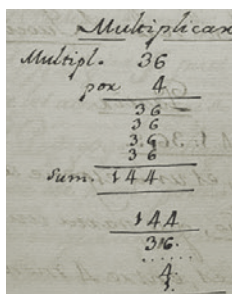 Multiplicar
Multipl. 36
por 4
36
36
36
36
Sum. 144
144
36.
4.